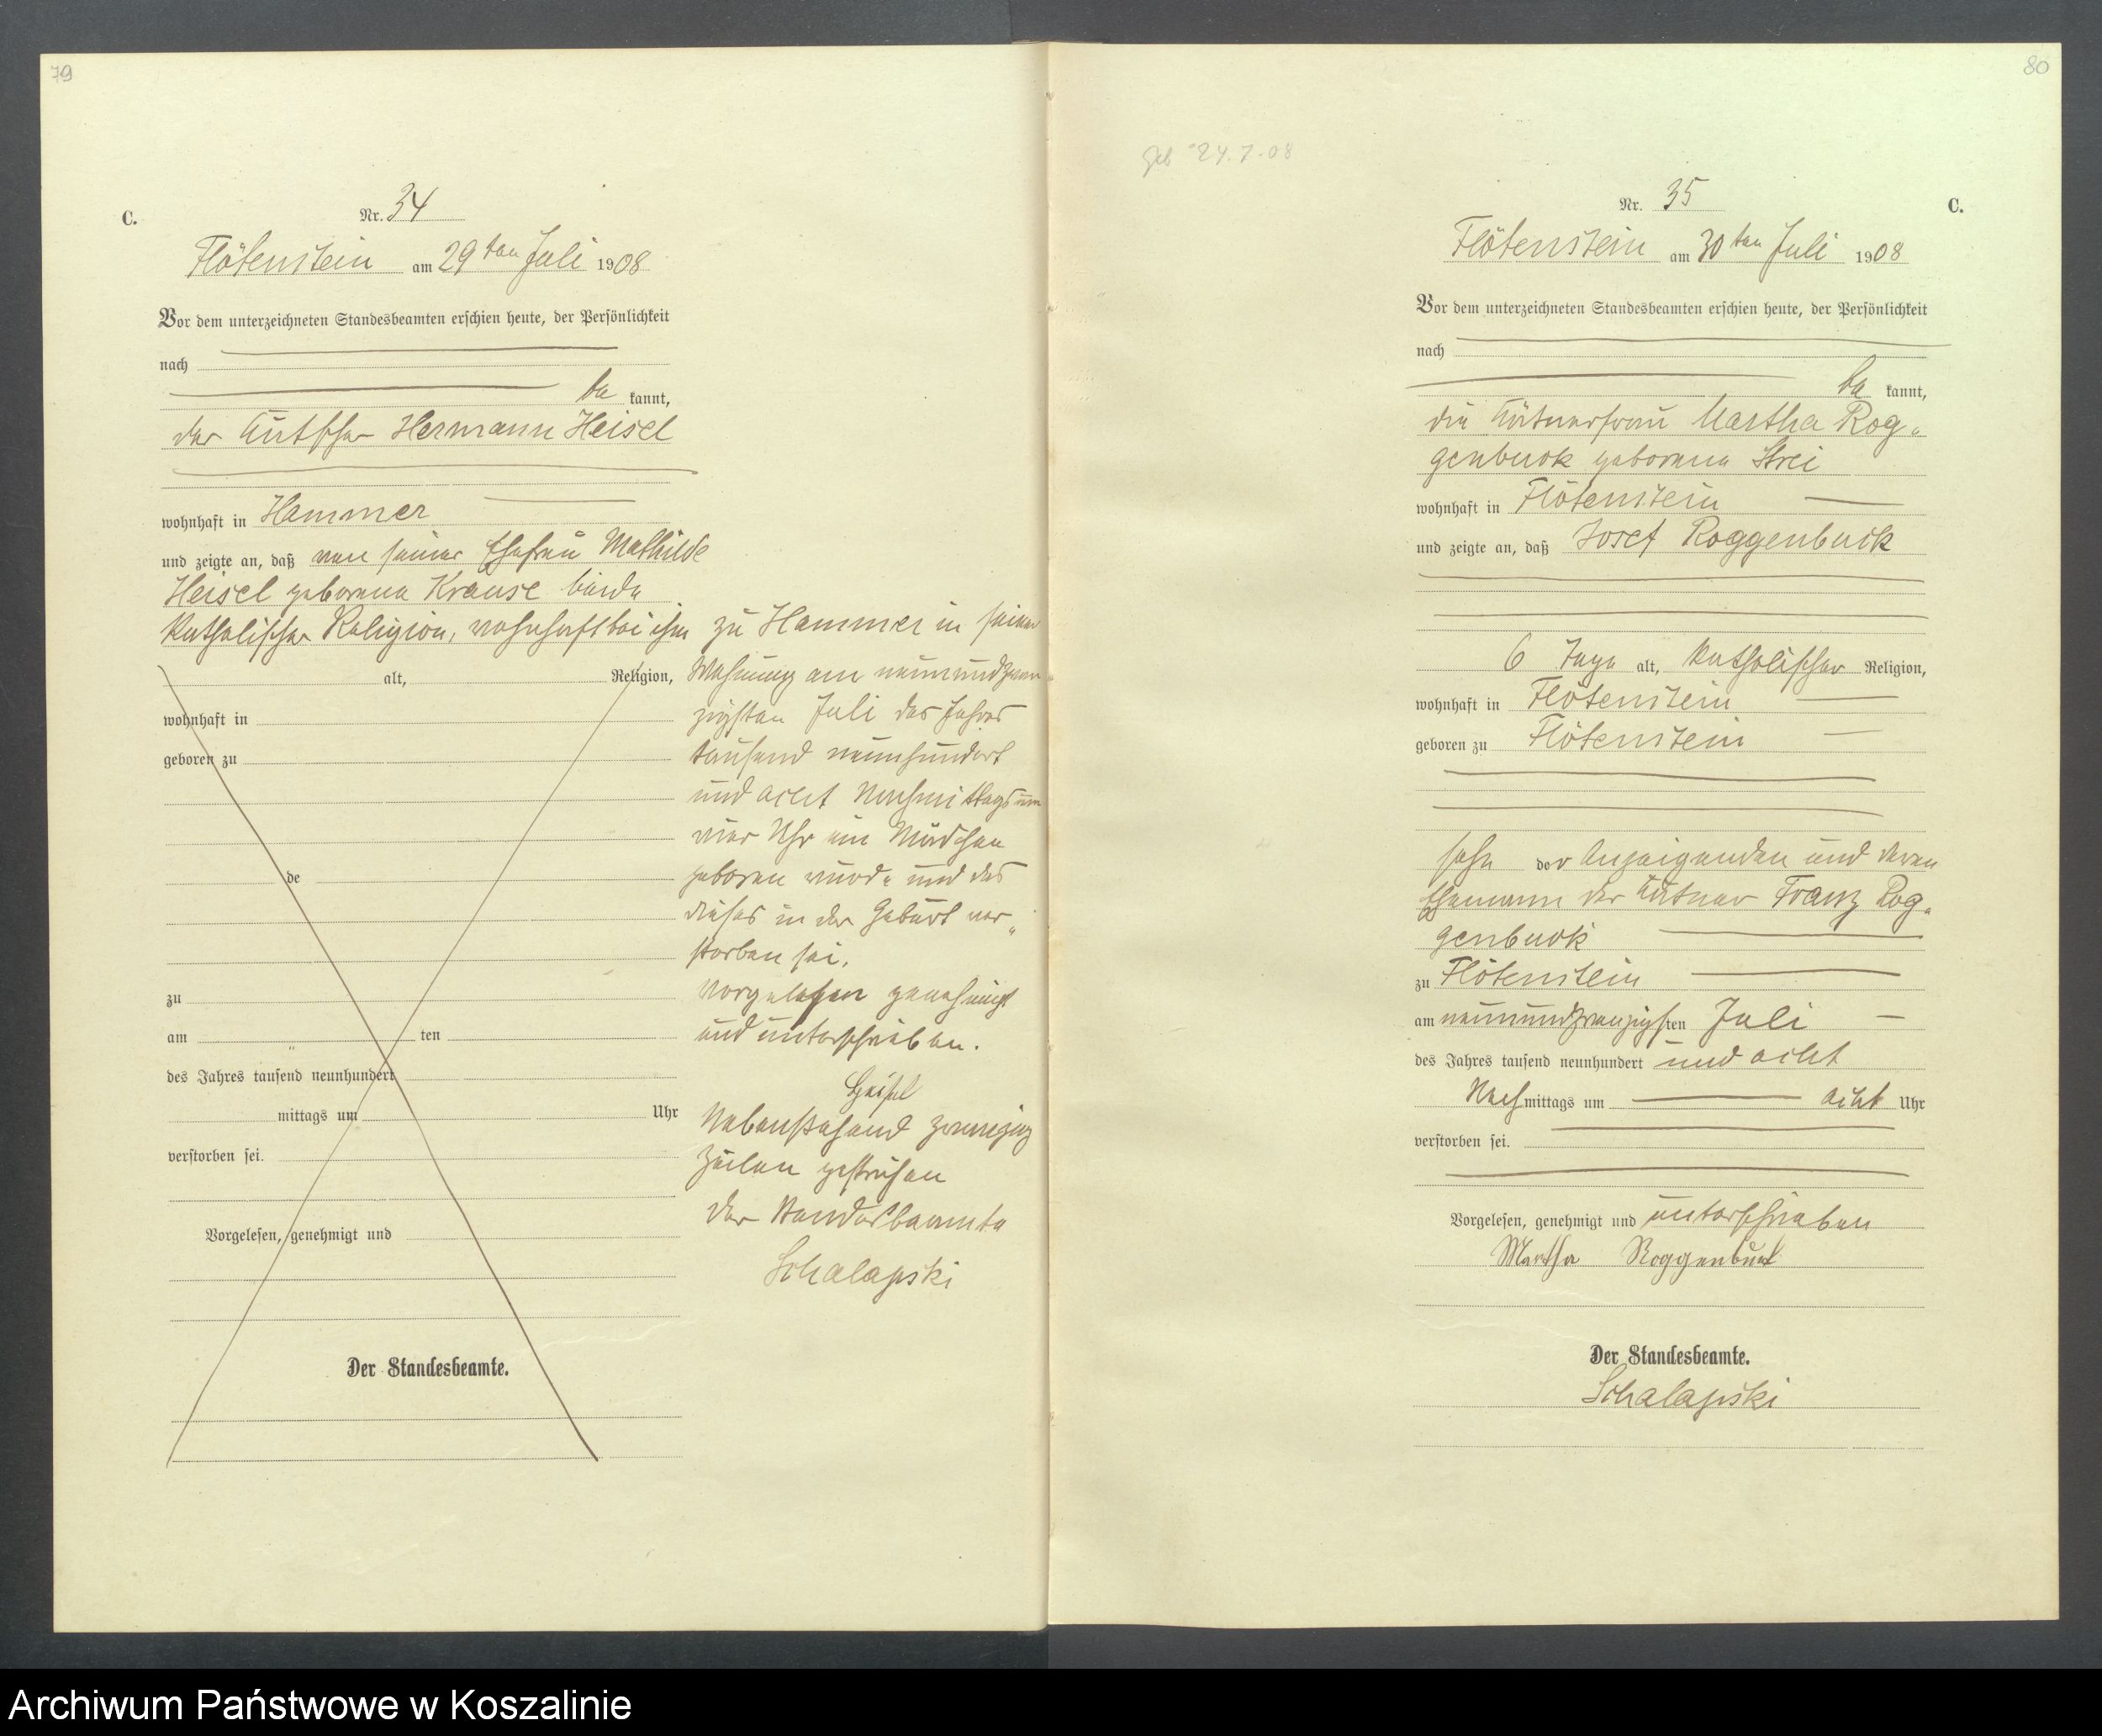 79
C.
Nr. 34
Flötenstein am 29ten Juli 1908
Vor dem unterzeichneten Standesbeamten erschien heute, der Persönlichkeit
nach
be kannt,
der Kutscher Hermann Heisel
wohnhaft in Hammer
und zeigte an, daß von seiner Ehefrau Mathilde
Heisel geborene Krause beide
katholischer Religion, wohnhaft bei ihm zu Hammer in seiner
alt, Religion,
Wohnung am neunundzwan
wohnhaft in
zigsten Juli des Jahres
geboren zu
tausend neunhundert
und acht Nachmittags um
vier Uhr ein Mädchen
de
geboren wurde und das
dieses in der Geburt ver„
storben sei.
zu
Vorgelesen genehmigt
am ten
und unterschrieben.
des Jahres tausend neunhundert
Heisel
mittags um Uhr
Nebenstehend zwanzig
verstorben sei.
Zeilen gestrichen
Der Standesbeamte
Vorgelesen, genehmigt und
Schalapski
Der Standesbeamte.
80
geb 24.7.08
Nr. 35
C.
Flötenstein am 30ten Juli 1908
Vor dem unterzeichneten Standesbeamten erschien heute, der Persönlichkeit
nach
be kannt,
die Kätnerfrau Martha Rog„
genbuck geborene Strei
wohnhaft in Flötenstein
und zeigte an, daß Josef Roggenbuck
6 Tage alt, katholischer Religion,
wohnhaft in Flötenstein
geboren zu Flötenstein
sohn der Anzeigenden und deren
Ehemann der Kätner Franz Rog„
genbuck
zu Flötenstein
am neunundzwanzigsten Juli
des Jahres tausend neunhundert und acht
Nachmittags um acht Uhr
verstorben sei.
Vorgelesen, genehmigt und unterschrieben
Martha Roggenbuck
Der Standesbeamte.
Schalapski
Archiwum Państwowe w Koszalinie